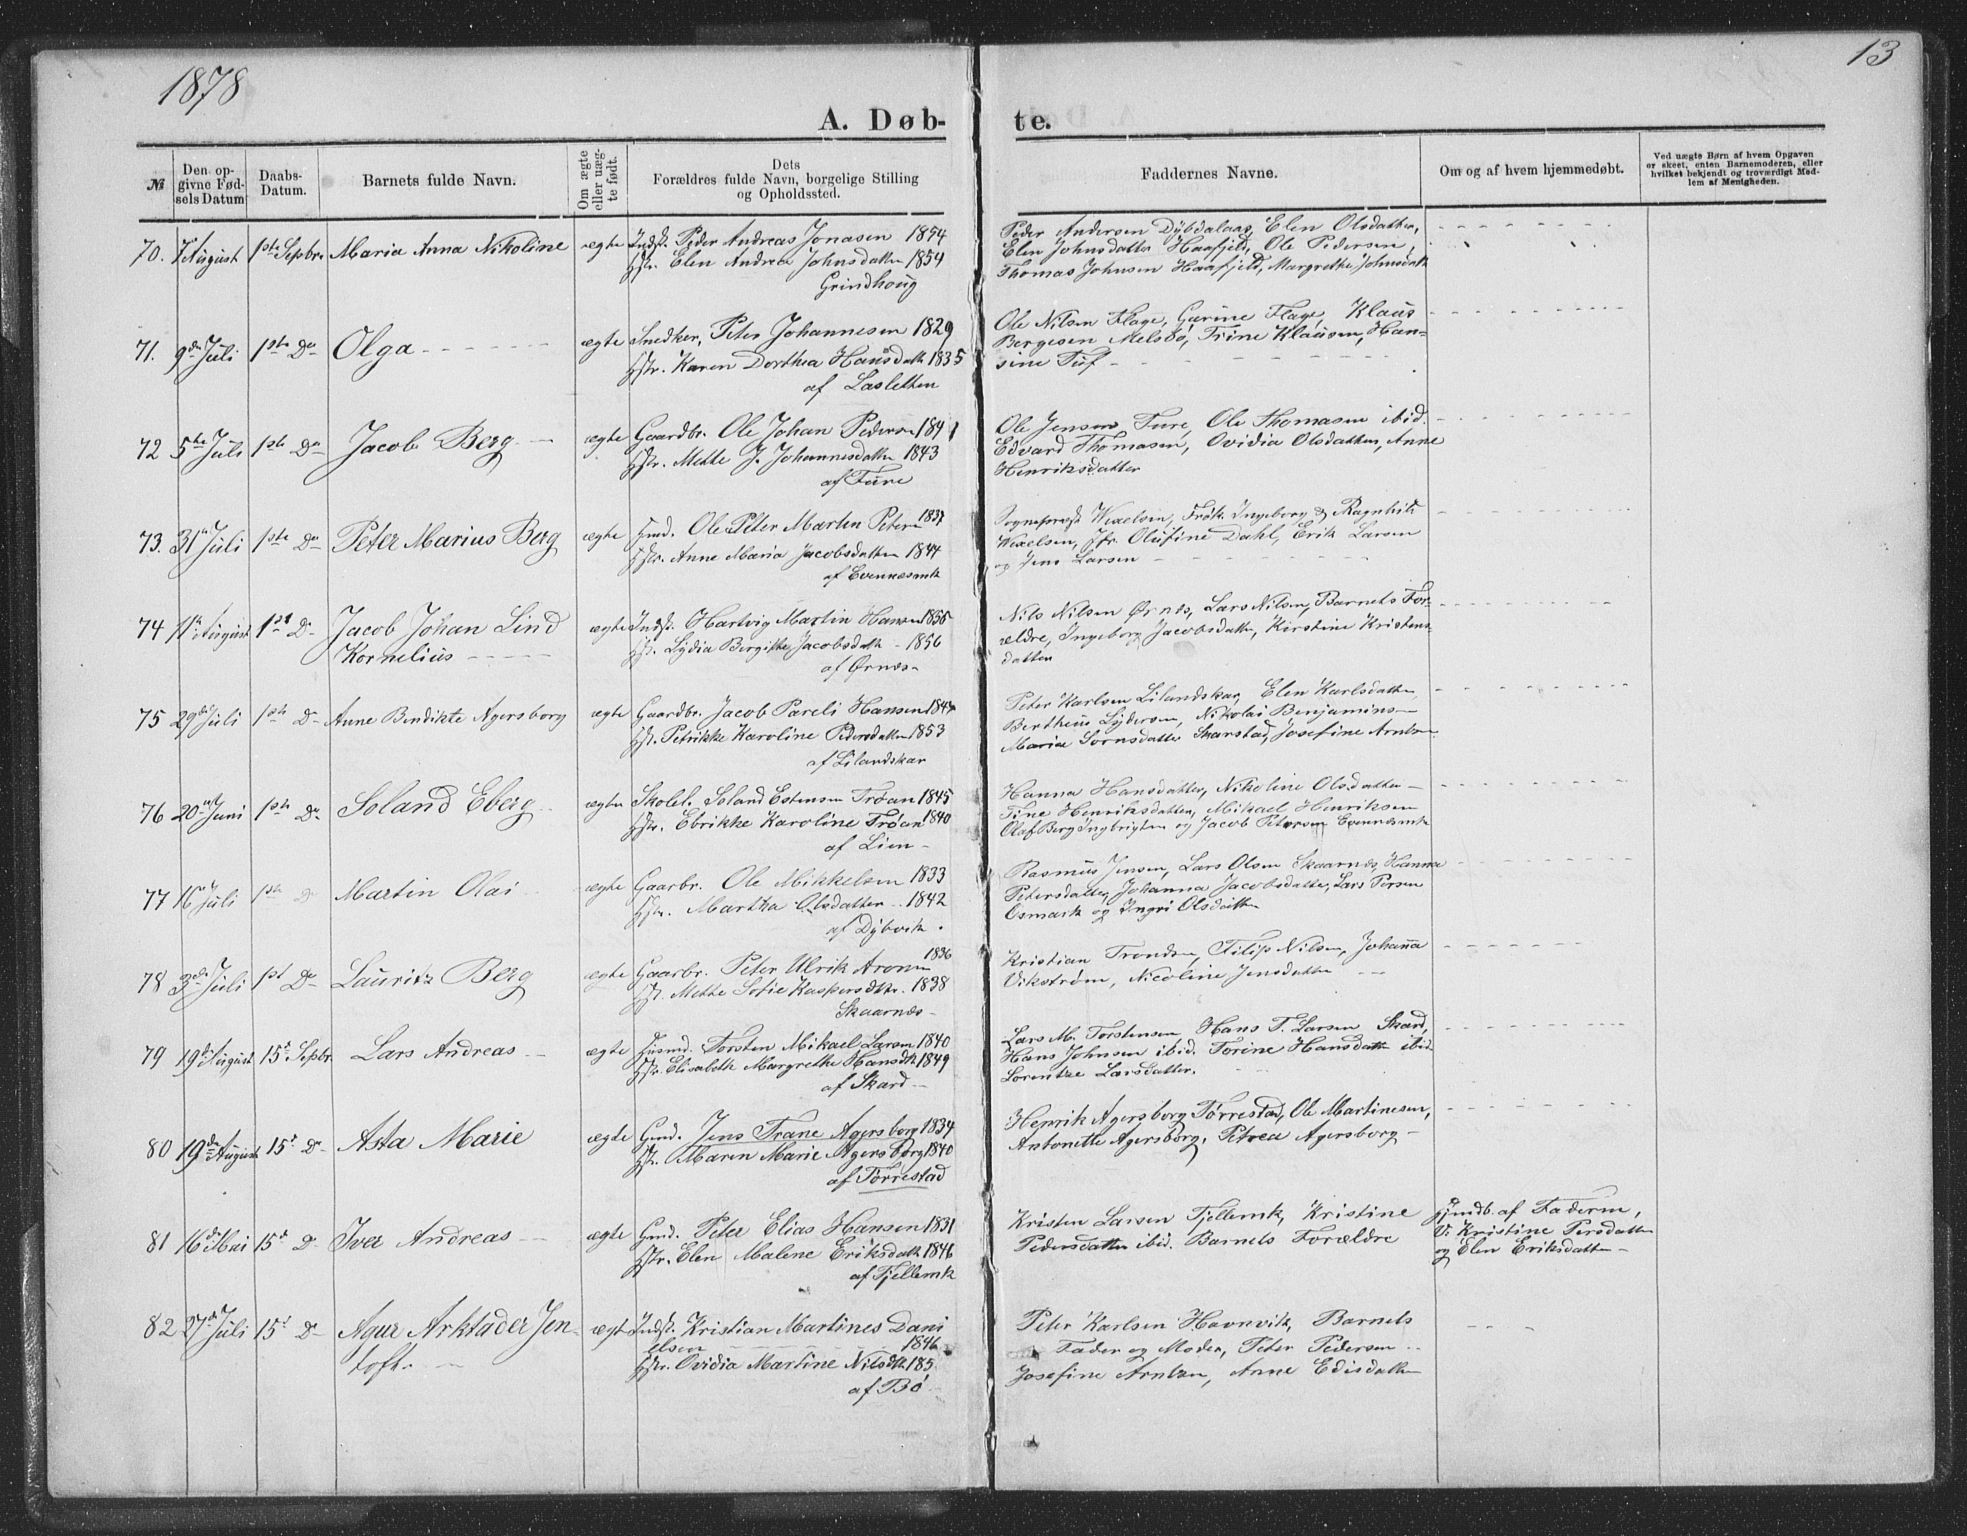 1878
13
A. Døb-
te.
№
Den op-
givne Fød-
sels Datum
Daabs-
Datum.
Barnets fulde Navn.
Om ægte
eller uæg-
te født.
Dets
Forældres fulde Navn, borgelige Stilling
og Opholdssted.
Faddernes Navne.
Om og af hvem hjemmedøbt.
Ved uægte Børn af hvem Opgaven
er skeet, enten Barnemoderen, eller
hvilket bekjendt og troværdigt Med-
lem af Menigheden.
70. 7 August 1ste Septbr. Maria Anna Nikoline ægte Indst. Peder Andreas Jonasen 1854
Hstr. Elen Andrea Johnsdatter 1854
Grindhoug
Peder Andersen Dybdalaas, Elen Olsdatter,
Elen Johnsdatter Haafjeld, Ole Pedersen,
Thomas Johnsen Haafjeld, Margrethe Johnsdatt
71. 9de Juli 1ste Do Olga ægte Snedker, Peter Johannesen 1829
Hstr. Karen Dorthea Hansdatt 1835
af Lasletten
Ole Nilsen Flage, Gurine Flage, Klaus
Bergesen Melsbø, Trine Klausen, Han-
sine Tuf
72 5te Juli 1ste Do Jacob Berg ægte Gaardbr. Ole Johan Pedersen 1841
Hstr. Mette J. Johannesdatter 1843
af Ture
Ole Jensen Ture, Ole Thomasen ibid.
Edvard Thomasen, Ovidia Olsdatter, Anne
Henriksdatter
73. 31te Juli 1ste Do Peter Marius Berg ægte Gmd. Ole Peter Martin Petersen 1837
Hstr. Anne Maria Jacobsdatter 1844
af Evenesmk
Sogneprest Wexelsen, Frøk. Ingeborg & Ragnhild
Wexelsen, Jfr. Olufine Dahl, Erik Larsen
og Jens Larsen
74 11te August 1ste Do Jacob Johan Lind
Kornelius
ægte Indst. Hartvig Martin Hansen 1855
Hst. Lydia Bergithe Jacobsdatt 1856
af Ørnes
Nils Nilsen Ørnes, Lars Nilsen, Barnets For-
ældre, Ingeborg Jacobsdatter, Kirstine Kristens-
datter
75 29de Juli 1ste Do Anne Bendikte Agersborg ægte Gaardbr. Jacob Pareli Hansen 1847
Hst. Petrikke Karoline Pedersdatter 1853
af Lilandskar
Peter Karlsen Lilandskar, Elen Karlsdatter,
Bertheus Lydersen, Nikolai Benjaminsen
Maria Sornsdatter Skarstad, Josefine Arntsen
76 20de Juni 1ste Do Soland Eberg ægte Skolel. Soland Estensen Trøan 1845
Hstr. Ebrikke Karoline Trøan 1840
af Lien
Hanna Hansdatter, Nikoline Olsdatter
Tine Henriksdatter, Mikael Henriksen
Olaf Berg Ingbrigtsen og Jacob Petersen Evenesmk
77 16de Juli 1ste Do Martin Olai ægte Gaarbr. Ole Mikkelsen 1833
Hstr. Martha Olsdatter 1842
af Dybvik.
Rasmus Jensen, Lars Olsen Skaarnes, Hanna
Petersdatter, Johanna Jacobsdatter, Lars Persen
Osmark og Ingri Olsdatter
78 3de Juli 1st Do Lauritz Berg ægte Gaarbr. Peter Ulrik Aronsen 1836
Hst. Mette Sofie Kaspersdtr. 1838
Skaarnes
Kristian Trondsen, Filip Nilsen, Johanna
Vikstrøm, Nicoline Jensdatter
79 19de August 15de Septbr. Lars Andreas ægte Husmd. Torsten Mikael Larsen 1840
Hstr. Elisabeth Margrethe Hansdt 1849
af Skard
Lars M. Torstensen, Hans T. Larsen Skard,
Hans Johnsen ibid. Torine Hansdatter ibid
Lorentze Larsdatter.
80 19de August 15de Do Asta Marie ægte Gmd. Jens Trane Agersborg 1834
Hstr. Maren Marie Agersborg 1840
af Tørrestad
Henrik Agersborg Tørrestad, Ole Martinesen,
Antonette Agersborg, Petrea Agersborg
81 16de Mai 15de Do Iver Andreas ægte Gmd. Peter Elias Hansen 1831
Hstr. Elen Malene Eriksdatt 1846
af Fjellemk
Kristen Larsen Fjellemk, Kristine
Pedersdatter ibid. Barnets Forældre
Hjmdb. af Faderen,
V. Kristine Persdatter
og Elen Eriksdatter
82 27de Juli 15de Do Agur Arktader Jen-
toft.
ægte Indst. Kristian Martines Dani
elsen 1846
Hstr. Ovidia Martine Nilsdt 185
af Bø
Peter Karlsen Havnvik, Barnets
Fader og Moder, Peter Pedersen
Josefine Arntsen, Anne Edisdatter